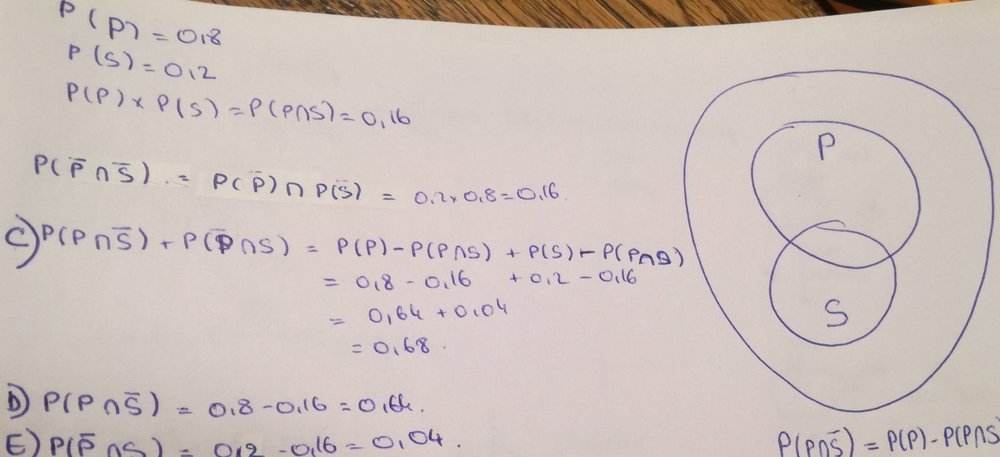 P(P) = 0,8
P(S) = 0,2
P(P) x P(S) = P(P∩S) = 0,16
P(P̅ ∩ S̅) . = P(P̅) ∩ P(S̅) = 0.2 x 0,8 = 0,16.
C) P(P∩S̅) + P(P̅∩S) = P(P) - P(P∩S) + P(S) - P(P∩S)
= 0,8 - 0,16 + 0,2 - 0,16
= 0,64 + 0,04
= 0,68.
D) P(P∩S̅) = 0,8 - 0,16 = 0,64.
E) P(P̅∩S) = 0,2 - 0,16 = 0,04.
P
S
P(P∩S̅) = P(P) - P(P∩S